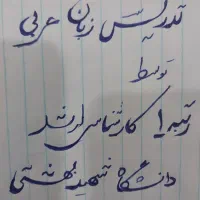 تدریس زبان عربی
توسط
رتبه ۱ کارشناسی ارشد
دانشگاه شهید بهشتی